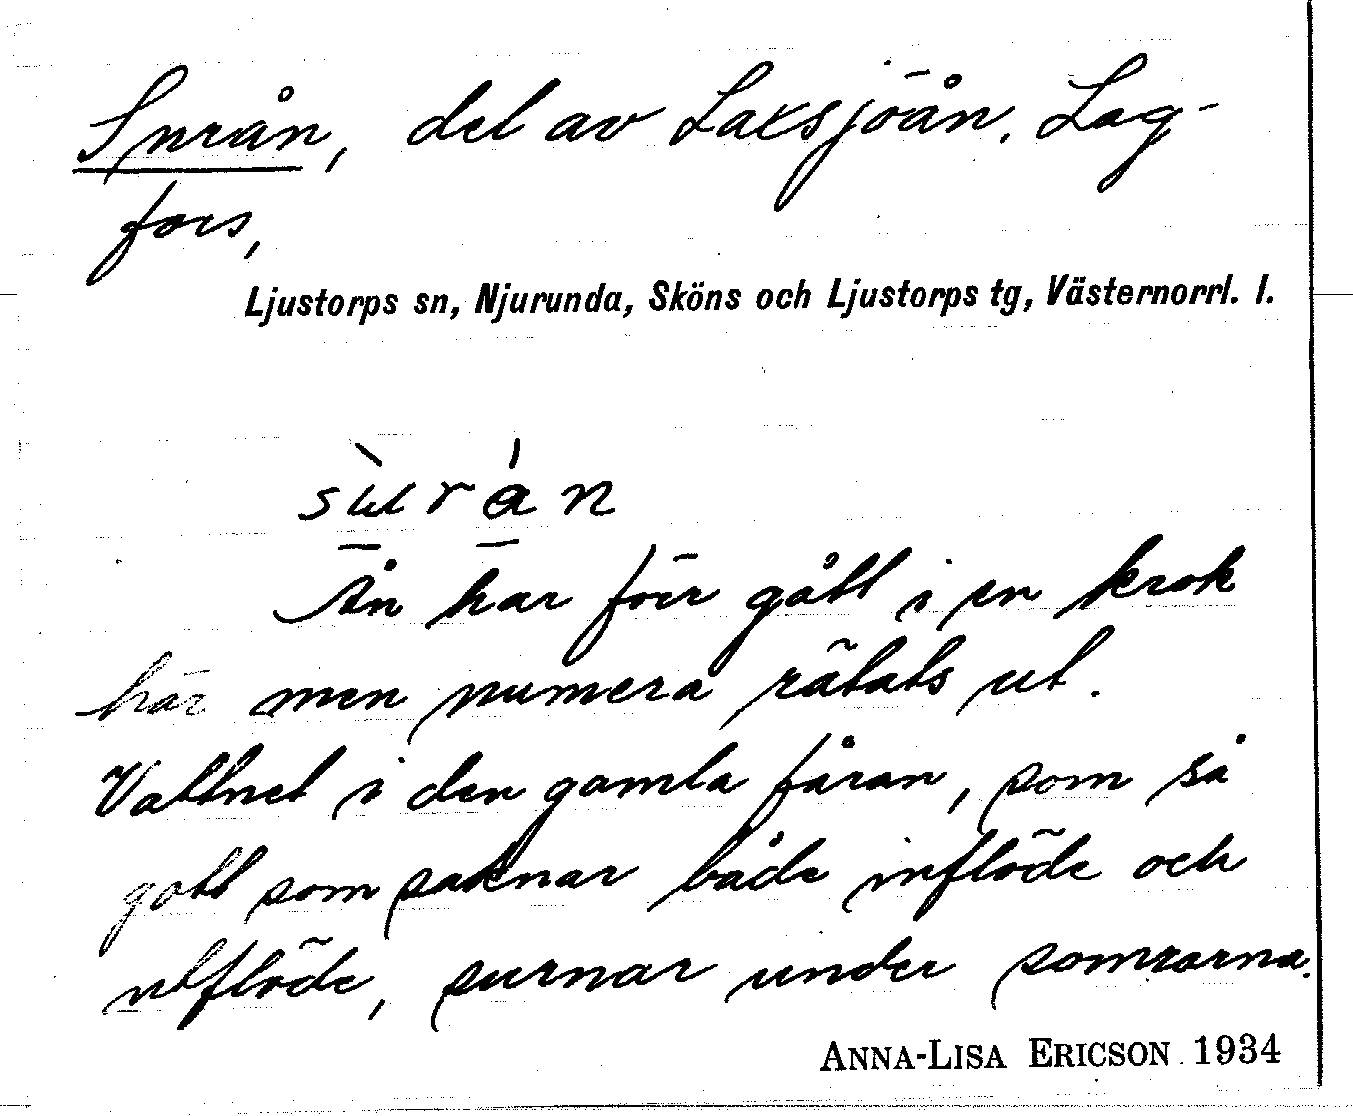 Surån, del av Laxsjöån, Lag-
fors,
Ljustorps sn, Njurunda, Sköns och Ljustorps tg, Västernorrl. l.
Ån har förr gått i en krok
här men numera rätats ut.
Vattnet i den gamla fåran, som så
gott som saknar både inflöde och
utflöde, surnar under somrarna.
ANNA-LISA ERICSON 1934